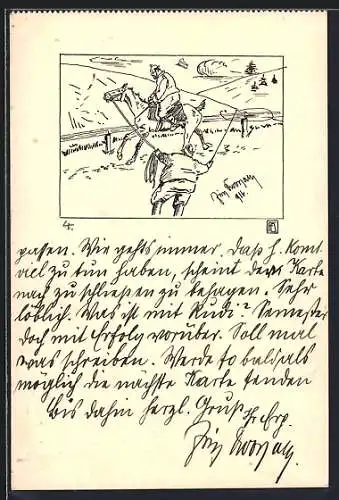 4.
passen. Wie gehts immer. Daß h. Komt.
viel zu tun haben, scheint der Karte
nach zu schließen zu behagen. Sehr
löblich. Was ist mit Rudi? Semester
doch mit Erfolg vorüber. Soll mal
was schreiben. Werde so bald als
möglich die nächste Karte senden
Bis dahin herzl. Gruß
Fritz